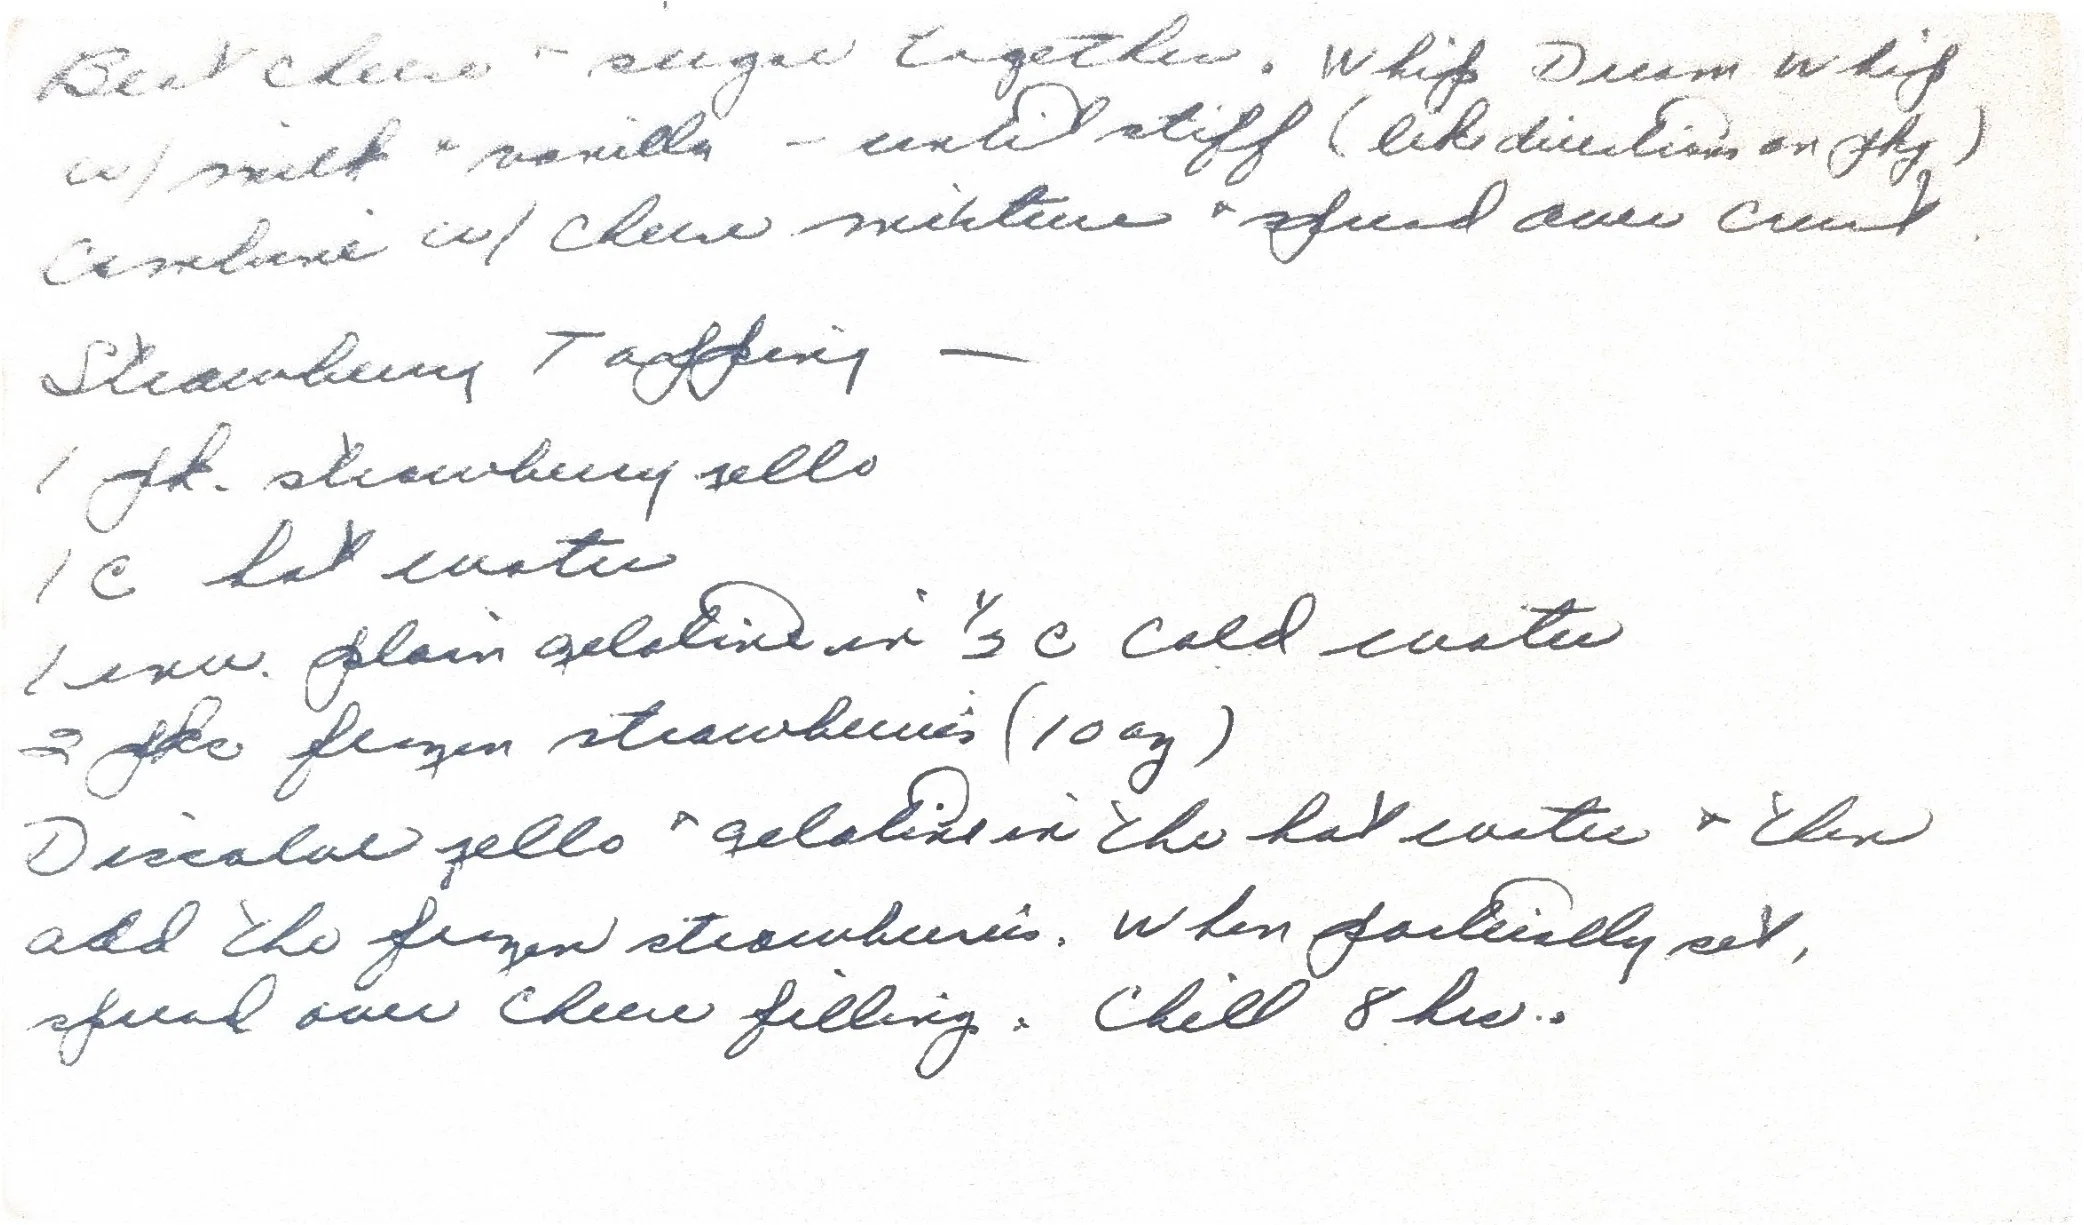 Beat cheese & sugar together. Whip Dream Whip
w/ milk & vanilla - until stiff (like directions on pkg)
Combine w/ cheese mixture & spread over crust.
Strawberry Topping —
1 pk. strawberry jello
1 C hot water
1 env. plain gelatine in C cold water
2 pks frozen strawberries (10 oz)
Dissolve jello & gelatine in the hot water & then
add the frozen strawberries. When partially set,
spread over cheese filling. Chill 8 hrs..